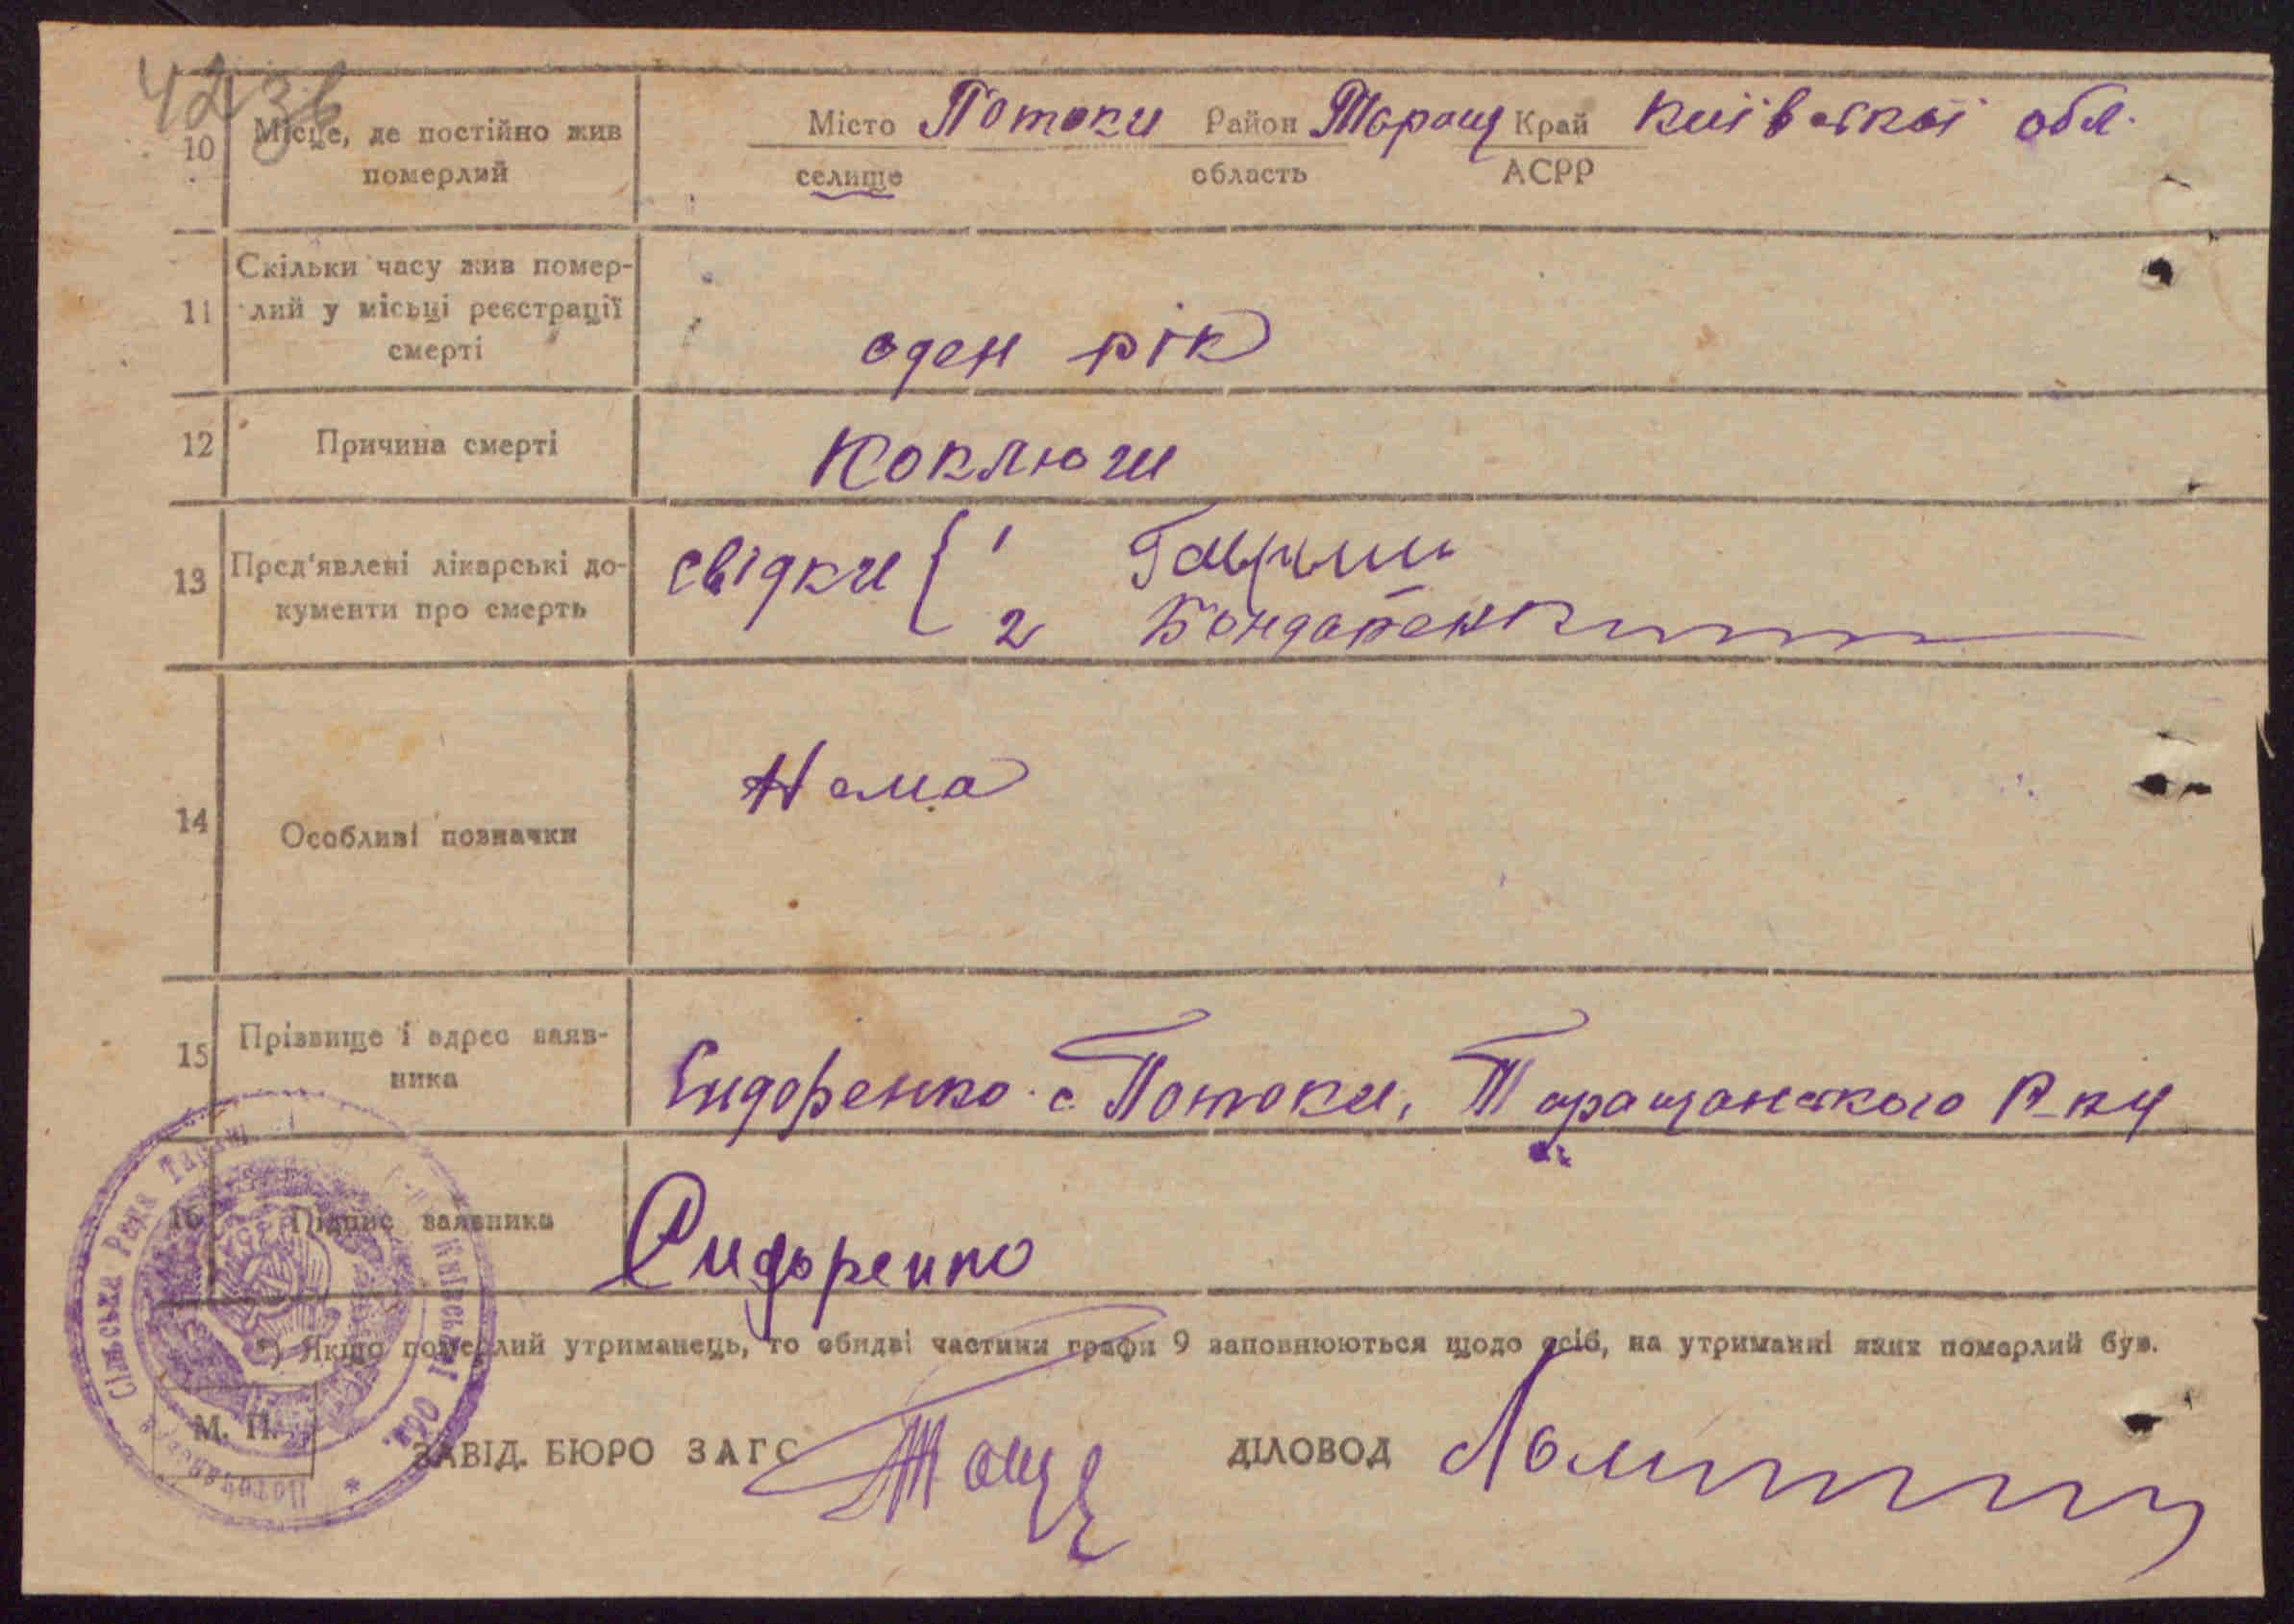 42 зв
10 Місце, де постійно жив померлий
Місто Потоки Район Таращ Край Київської обл.
селище область АСРР
11 Скільки часу жив помер-
лий у місьці реєстрації
смерті
оден рік
12 Причина смерті
Коклюш
13 Пред'явлені лікарські до-
кументи про смерть
свідки { 1 Гавриш
2 Бондаренк
14 Особливі позначки
Нема
15 Прізвище і адрес заяв-
ника
Сидоренко с Потоки, Таращанского Р-ну
16 Підпис заявника
Сидоренко
*) Якщо померлий утриманець, то обидві частини графи 9 заповнюються щодо осіб, на утриманні яких померлий був.
М. П.
ЗАВІД. БЮРО ЗАГС
ДІЛОВОД
Сільська Рада Таращ Київської Обл. *